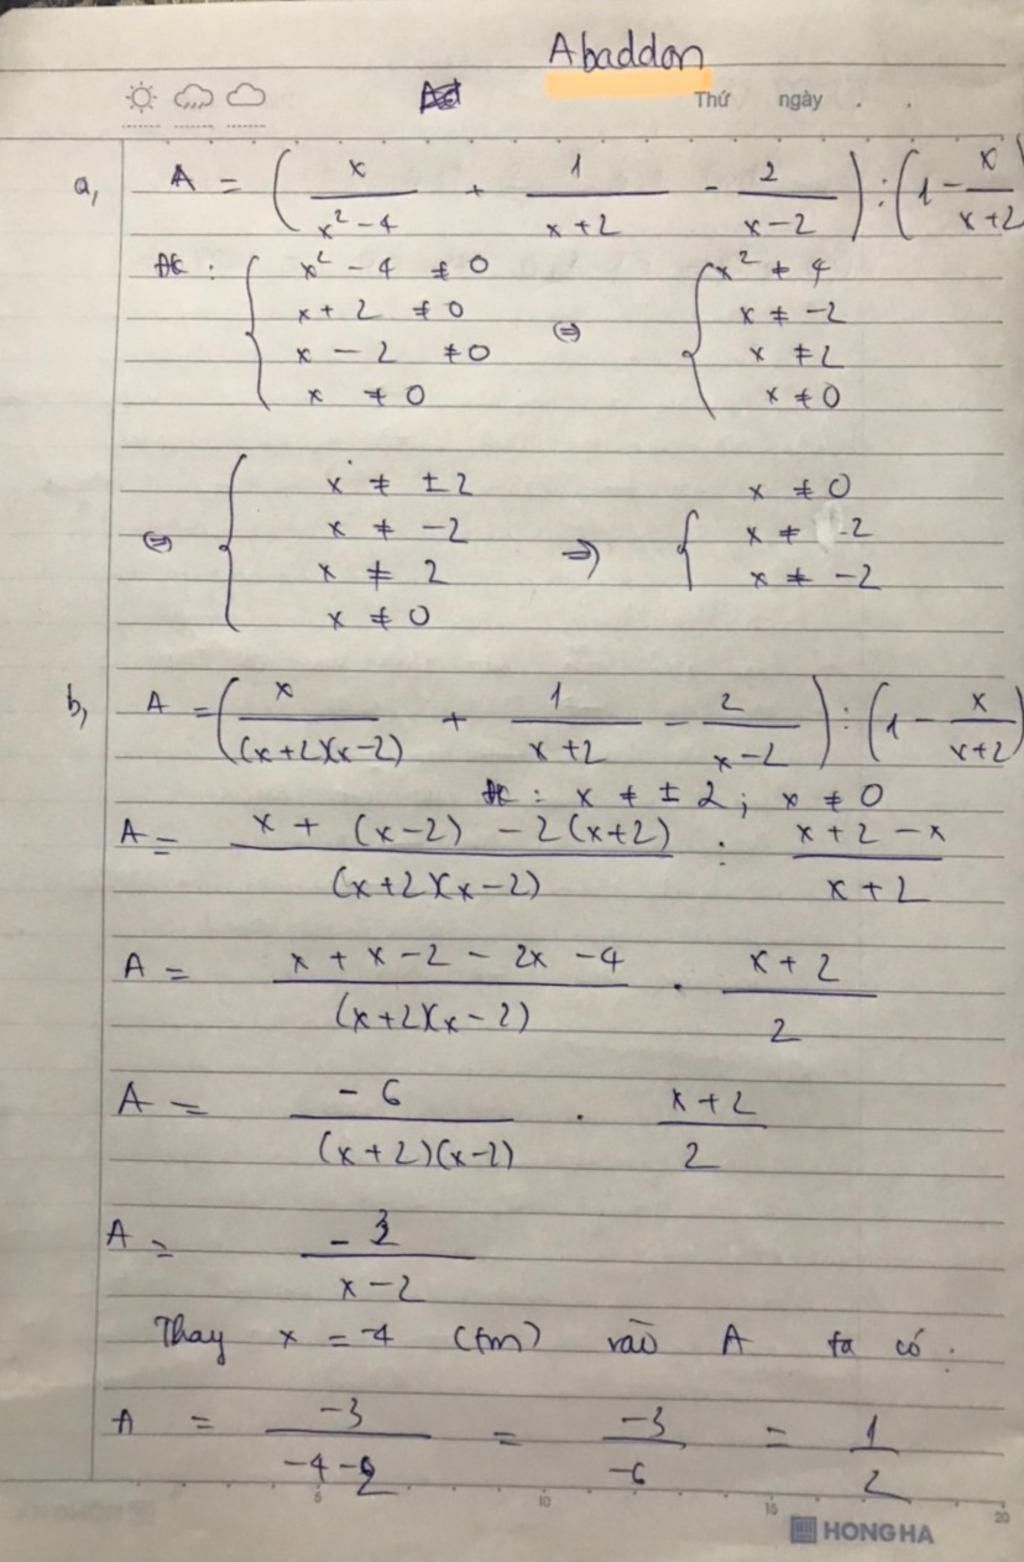 Abaddon
Thứ ngày . .
a, A = ( x/(x² - 4) + 1/(x+2) - 2/(x-2) ) : ( 1 - x/(x+2)
ĐK : { x² - 4 ≠ 0 { x² ≠ 4
x + 2 ≠ 0 ⇔ x ≠ -2
x - 2 ≠ 0 x ≠ 2
x ≠ 0 x ≠ 0
⇔ { x ≠ ±2 ⇒ { x ≠ 0
x ≠ -2 x ≠ -2
x ≠ 2 x ≠ -2
x ≠ 0
b, A = ( x/((x+2)(x-2)) + 1/(x+2) - 2/(x-2) ) : ( 1 - x/(x+2) )
ĐK : x ≠ ±2 ; x ≠ 0
A = (x + (x-2) - 2(x+2))/((x+2)(x-2)) : (x+2-x)/(x+2)
A = (x + x - 2 - 2x - 4)/((x+2)(x-2)) . (x+2)/2
A = -6/((x+2)(x-2)) . (x+2)/2
A = -3/(x-2)
Thay x = -4 (tm) vào A ta có :
A = -3/(-4-2) = -3/-6 = 1/2
5 10 15 20
HONG HA